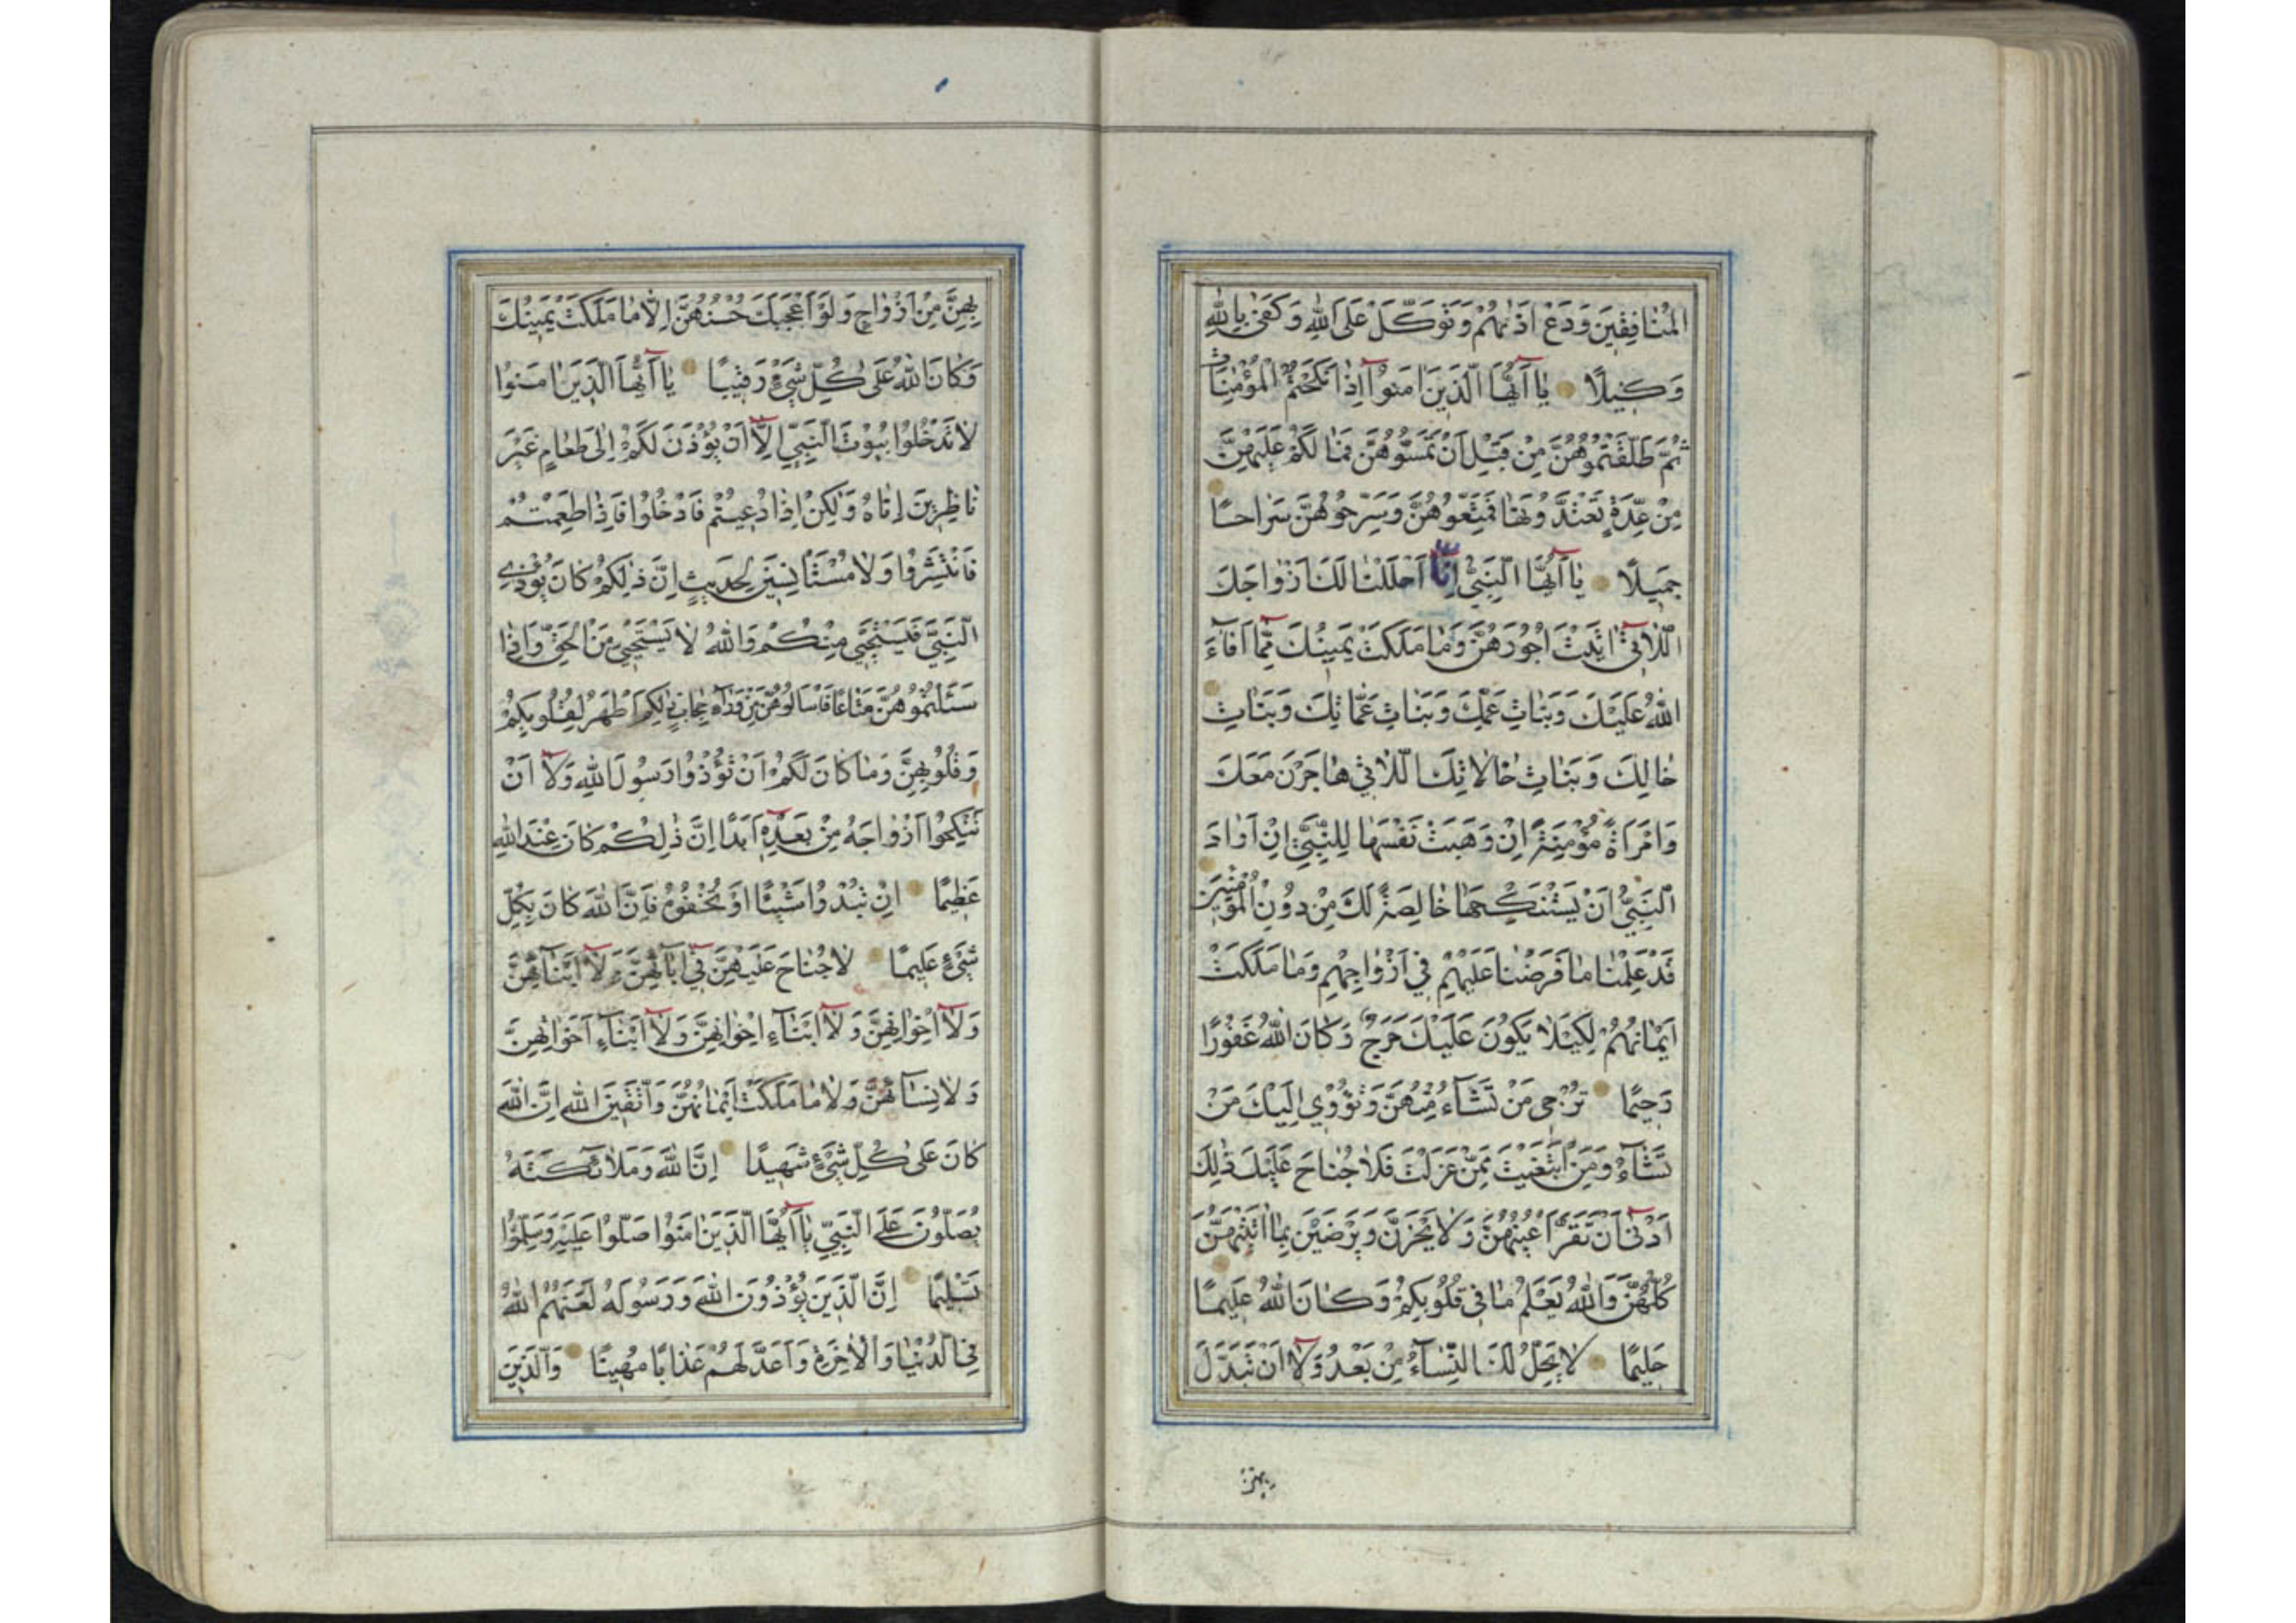 الْمُنَافِقِينَ وَدَعْ اَذٰيهُمْ وَتَوَكَّلْ عَلَى اللّٰهِ وَكَفىٰ بِاللّٰهِ
وَكِيلًا يٰٓا اَيُّهَا الَّذِينَ اٰمَنُوٓا اِذٰا نَكَحْتُمُ الْمُؤْمِنٰاتِ
ثُمَّ طَلَّقْتُمُوهُنَّ مِنْ قَبْلِ اَنْ تَمَسُّوهُنَّ فَمٰا لَكُمْ عَلَيْهِنَّ
مِنْ عِدَّةٍ تَعْتَدُّونَهٰا فَمَتِّعُوهُنَّ وَسَرِّحُوهُنَّ سَرٰاحًا
جَمِيلًا يٰٓا اَيُّهَا النَّبِيُّ اِنّٰٓا اَحْلَلْنٰا لَكَ اَزْوٰاجَكَ
اللّٰاتِيٓ اٰتَيْتَ اُجُورَهُنَّ وَمٰا مَلَكَتْ يَمِينُكَ مِمّٰٓا اَفٰٓاءَ
اللّٰهُ عَلَيْكَ وَبَنٰاتِ عَمِّكَ وَبَنٰاتِ عَمّٰاتِكَ وَبَنٰاتِ
خٰالِكَ وَبَنٰاتِ خٰالٰاتِكَ اللّٰاتِي هٰاجَرْنَ مَعَكَ
وَامْرَاَةً مُؤْمِنَةً اِنْ وَهَبَتْ نَفْسَهٰا لِلنَّبِيِّ اِنْ اَرٰادَ
النَّبِيُّ اَنْ يَسْتَنْكِحَهٰا خٰالِصَةً لَكَ مِنْ دُونِ الْمُؤْمِنِينَ
قَدْ عَلِمْنٰا مٰا فَرَضْنٰا عَلَيْهِمْ فِي اَزْوٰاجِهِمْ وَمٰا مَلَكَتْ
اَيْمٰانُهُمْ لِكَيْلٰا يَكُونَ عَلَيْكَ حَرَجٌ وَكٰانَ اللّٰهُ غَفُورًا
رَحِيمًا تُرْجِي مَنْ تَشٰٓاءُ مِنْهُنَّ وَتُؤْوِي اِلَيْكَ مَنْ
تَشٰٓاءُ وَمَنِ ابْتَغَيْتَ مِمَّنْ عَزَلْتَ فَلٰا جُنٰاحَ عَلَيْكَ ذٰلِكَ
اَدْنىٰٓ اَنْ تَقَرَّ اَعْيُنُهُنَّ وَلٰا يَحْزَنَّ وَيَرْضَيْنَ بِمٰٓا اٰتَيْتَهُنَّ
كُلُّهُنَّ وَاللّٰهُ يَعْلَمُ مٰا فِي قُلُوبِكُمْ وَكٰانَ اللّٰهُ عَلِيمًا
حَلِيمًا لٰا يَحِلُّ لَكَ النِّسٰٓاءُ مِنْ بَعْدُ وَلٰٓا اَنْ تَبَدَّلَ
بِهِنَّ
بِهِنَّ مِنْ اَزْوٰاجٍ وَلَوْ اَعْجَبَكَ حُسْنُهُنَّ اِلّٰا مٰا مَلَكَتْ يَمِينُكَ
وَكٰانَ اللّٰهُ عَلىٰ كُلِّ شَيْءٍ رَقِيبًا يٰٓا اَيُّهَا الَّذِينَ اٰمَنُوا
لٰا تَدْخُلُوا بُيُوتَ النَّبِيِّ اِلّٰٓا اَنْ يُؤْذَنَ لَكُمْ اِلىٰ طَعٰامٍ غَيْرَ
نٰاظِرِينَ اِنٰاهُ وَلٰكِنْ اِذٰا دُعِيتُمْ فَادْخُلُوا فَاِذٰا طَعِمْتُمْ
فَانْتَشِرُوا وَلٰا مُسْتَأْنِسِينَ لِحَدِيثٍ اِنَّ ذٰلِكُمْ كٰانَ يُؤْذِي
النَّبِيَّ فَيَسْتَحْيِي مِنْكُمْ وَاللّٰهُ لٰا يَسْتَحْيِي مِنَ الْحَقِّ وَاِذٰا
سَئَلْتُمُوهُنَّ مَتٰاعًا فَاسْاَلُوهُنَّ مِنْ وَرٰٓاءِ حِجٰابٍ ذٰلِكُمْ اَطْهَرُ لِقُلُوبِكُمْ
وَقُلُوبِهِنَّ وَمٰا كٰانَ لَكُمْ اَنْ تُؤْذُوا رَسُولَ اللّٰهِ وَلٰٓا اَنْ
تَنْكِحُوٓا اَزْوٰاجَهُ مِنْ بَعْدِهِٓ اَبَدًا اِنَّ ذٰلِكُمْ كٰانَ عِنْدَ اللّٰهِ
عَظِيمًا اِنْ تُبْدُوا شَيْئًا اَوْ تُخْفُوهُ فَاِنَّ اللّٰهَ كٰانَ بِكُلِّ
شَيْءٍ عَلِيمًا لٰا جُنٰاحَ عَلَيْهِنَّ فِيٓ اٰبٰٓائِهِنَّ وَلٰٓا اَبْنٰٓائِهِنَّ
وَلٰٓا اِخْوٰانِهِنَّ وَلٰٓا اَبْنٰٓاءِ اِخْوٰانِهِنَّ وَلٰٓا اَبْنٰٓاءِ اَخَوٰاتِهِنَّ
وَلٰا نِسٰٓائِهِنَّ وَلٰا مٰا مَلَكَتْ اَيْمٰانُهُنَّ وَاتَّقِينَ اللّٰهَ اِنَّ اللّٰهَ
كٰانَ عَلىٰ كُلِّ شَيْءٍ شَهِيدًا اِنَّ اللّٰهَ وَمَلٰٓائِكَتَهُ
يُصَلُّونَ عَلَى النَّبِيِّ يٰٓا اَيُّهَا الَّذِينَ اٰمَنُوا صَلُّوا عَلَيْهِ وَسَلِّمُوا
تَسْلِيمًا اِنَّ الَّذِينَ يُؤْذُونَ اللّٰهَ وَرَسُولَهُ لَعَنَهُمُ اللّٰهُ
فِي الدُّنْيٰا وَالْاٰخِرَةِ وَاَعَدَّ لَهُمْ عَذٰابًا مُهِينًا وَالَّذِينَ